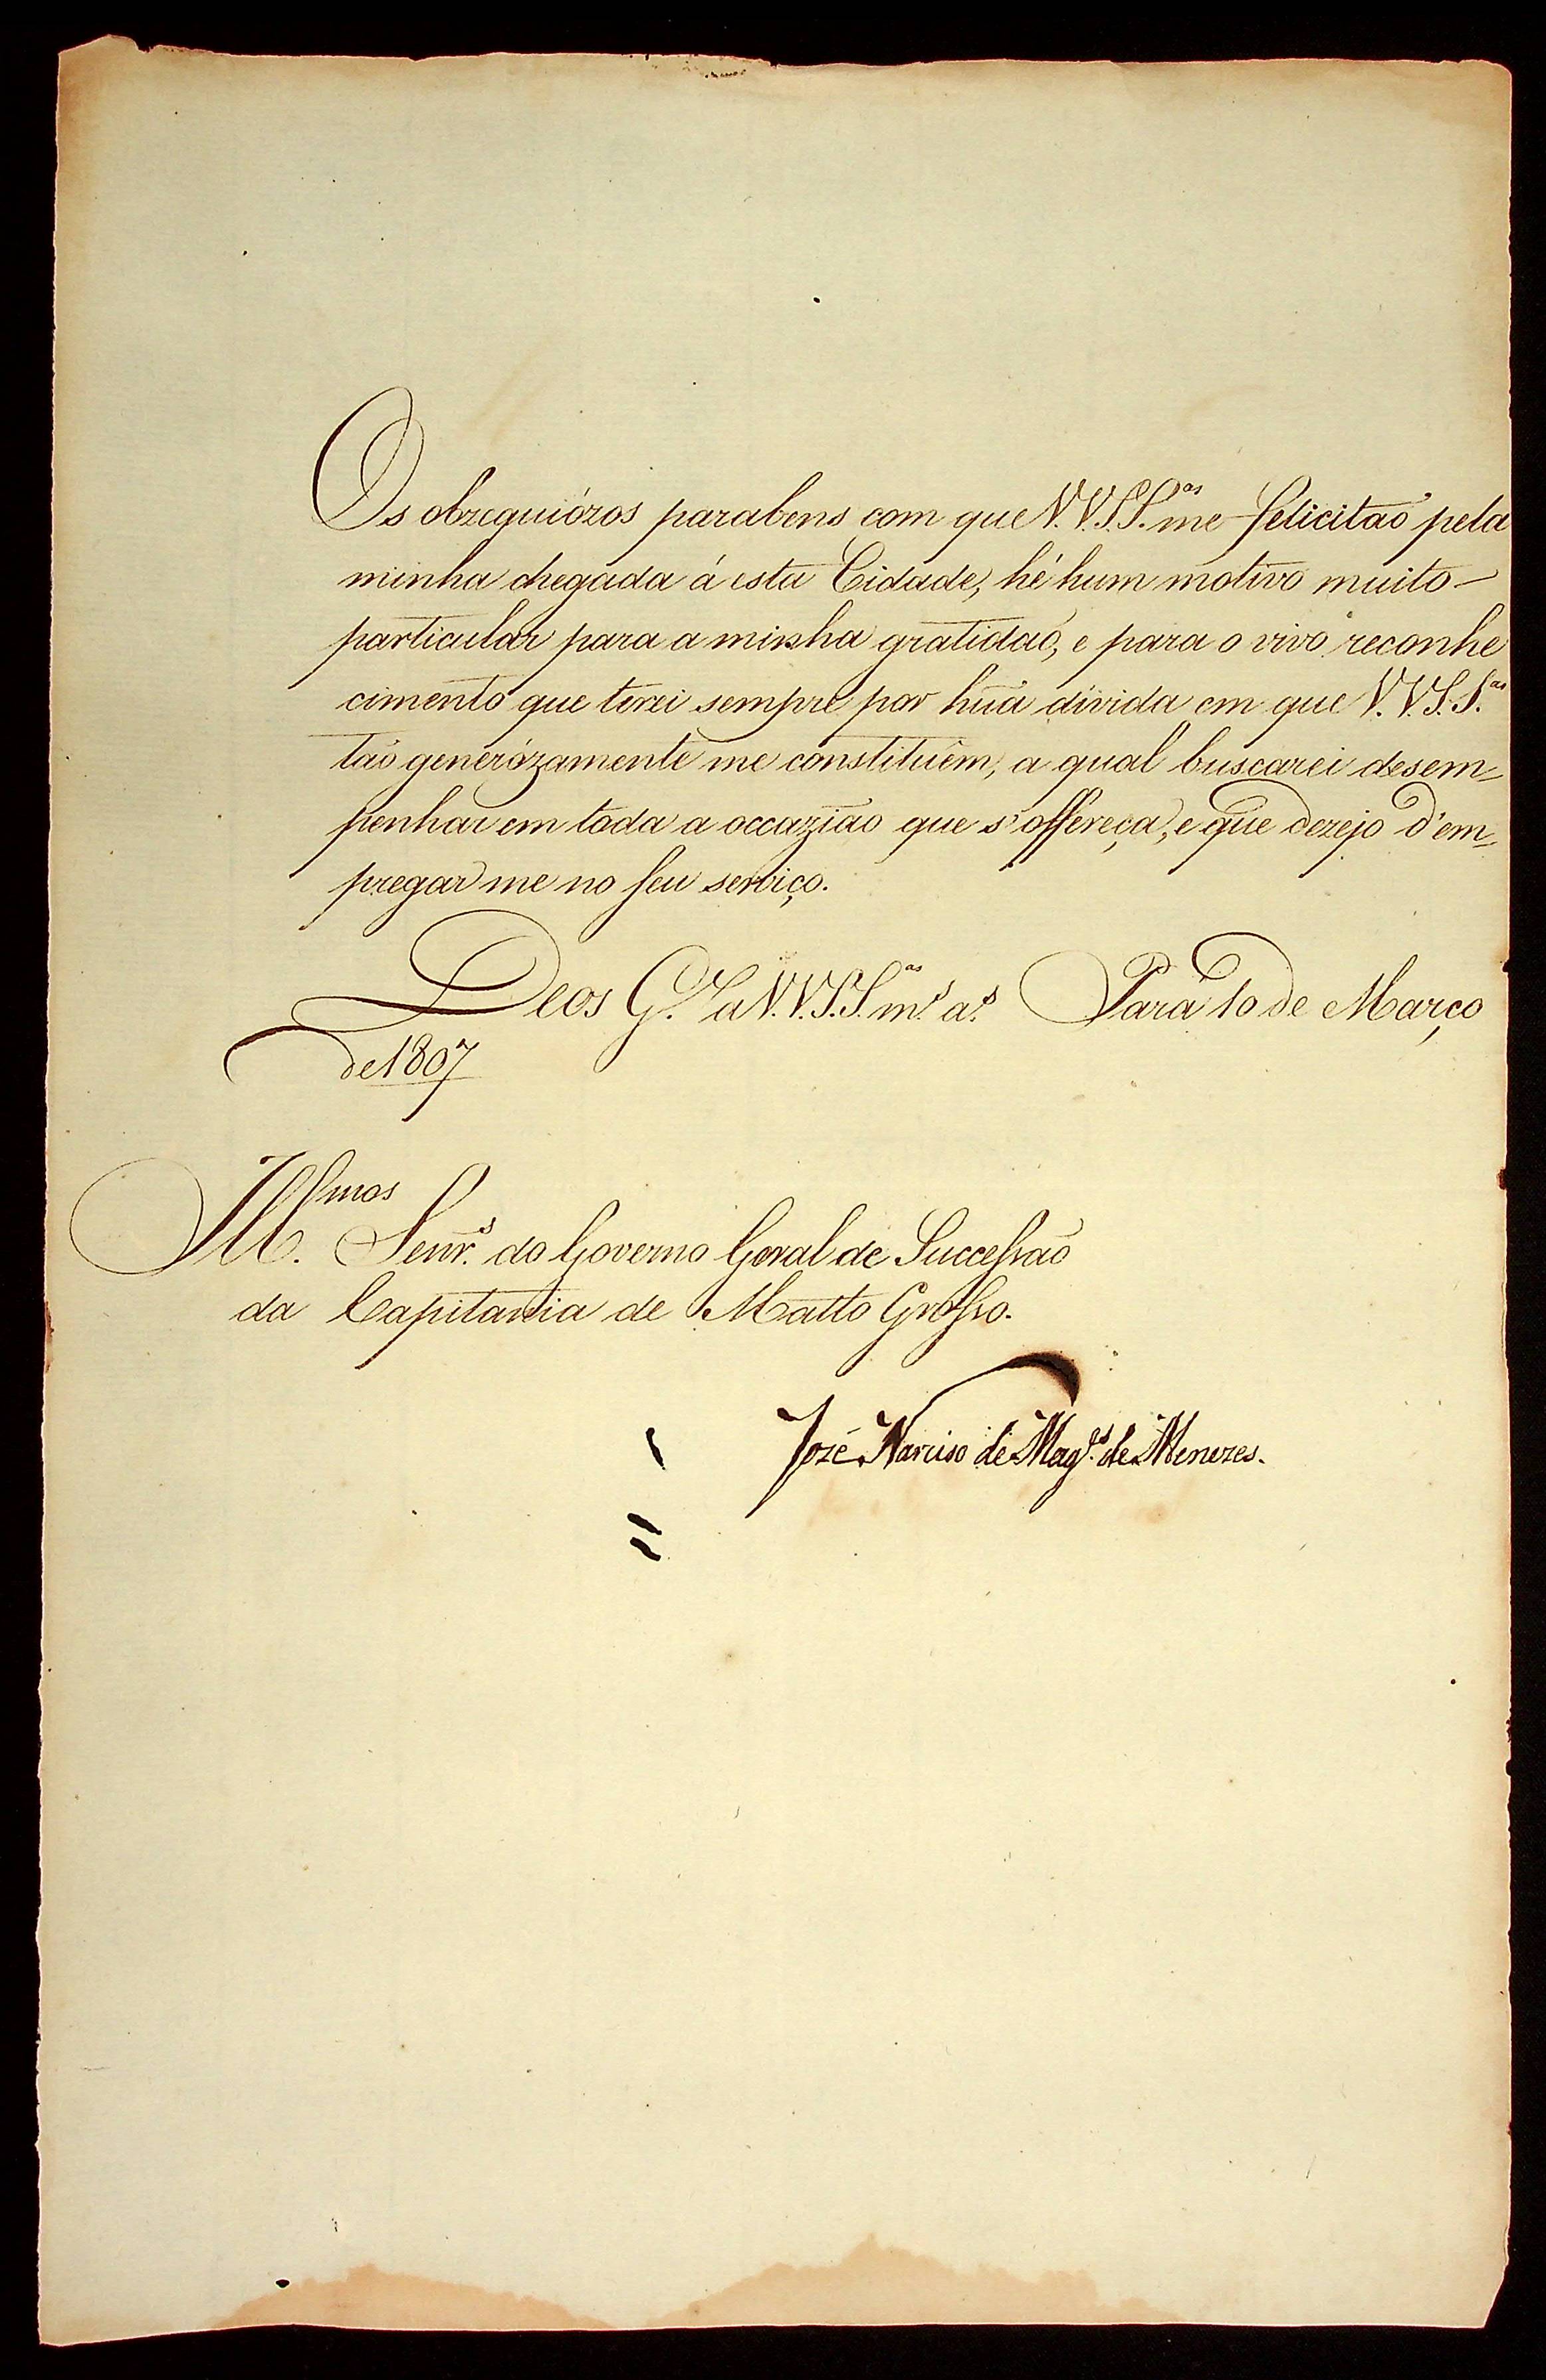 Os obzequiózos parabens com que V.V.S.S.as me felicitaõ pela
minha chegada á esta Cidade, hé hum motivo muito
particular para a minha gratidaõ, e para o vivo reconhe
cimento que terei sempre por hũa divida em que V.V.S.S.as
taõ generózamente me constituêm, a qual buscarei desem=
penhar em toda a occaziaõ que s'offereça, e que dezejo d'em=
pregar me no seu serviço.
Deos G.de a V.V.S.S.as m.s a.s Pará 10 de Março
de 1807
Ill.mos Senr.s do Governo Geral de Successaõ
da Capitania de Matto Grosso.
Jozé Narciso de Mag.es de Menezes.